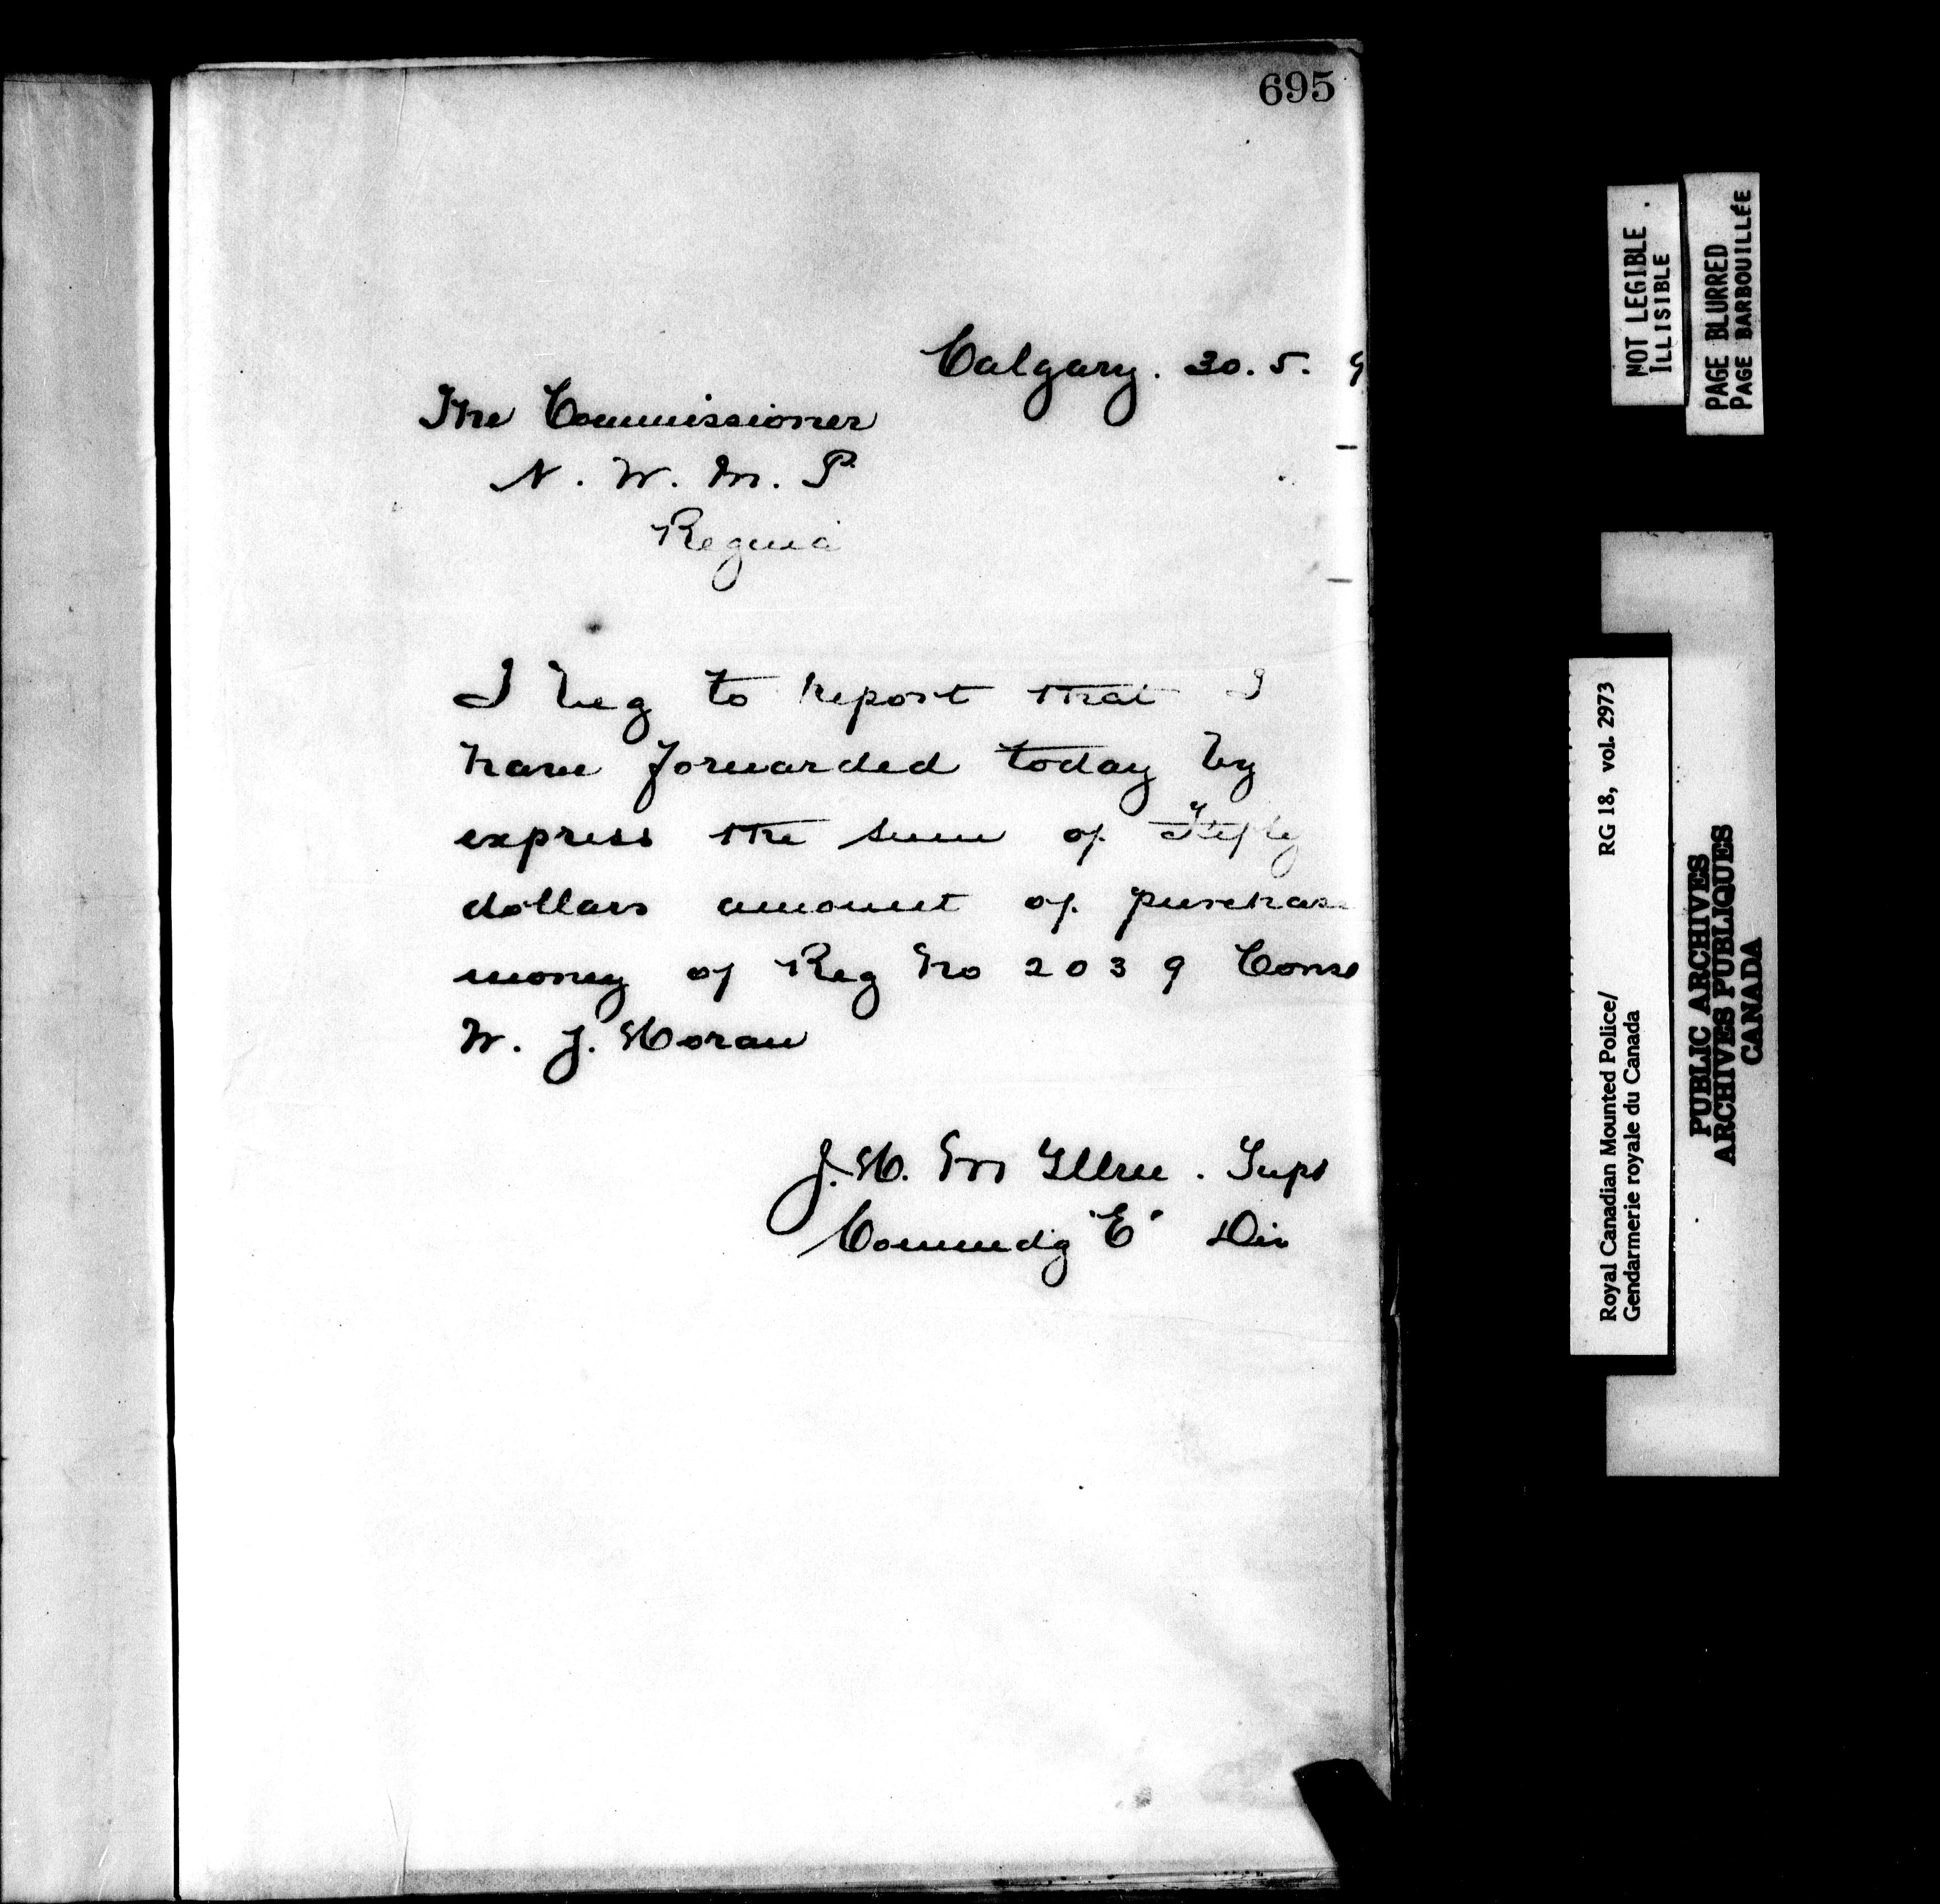 695
Calgary. 30. 5. 9
The Commissioner
N. W. M. P.
Regina
I beg to report that I
have forwarded today by
express the sum of Fifty
dollars amount of purchase
money of Reg No 2039 Cons
W. J. Horan
J. H. McIllree. Supt
Commdg "E" Div
NOT LEGIBLE
ILLISIBLE
PAGE BLURRED
PAGE BARBOUILLÉE
RG 18, vol. 2973
Royal Canadian Mounted Police/
Gendarmerie royale du Canada
PUBLIC ARCHIVES
ARCHIVES PUBLIQUES
CANADA